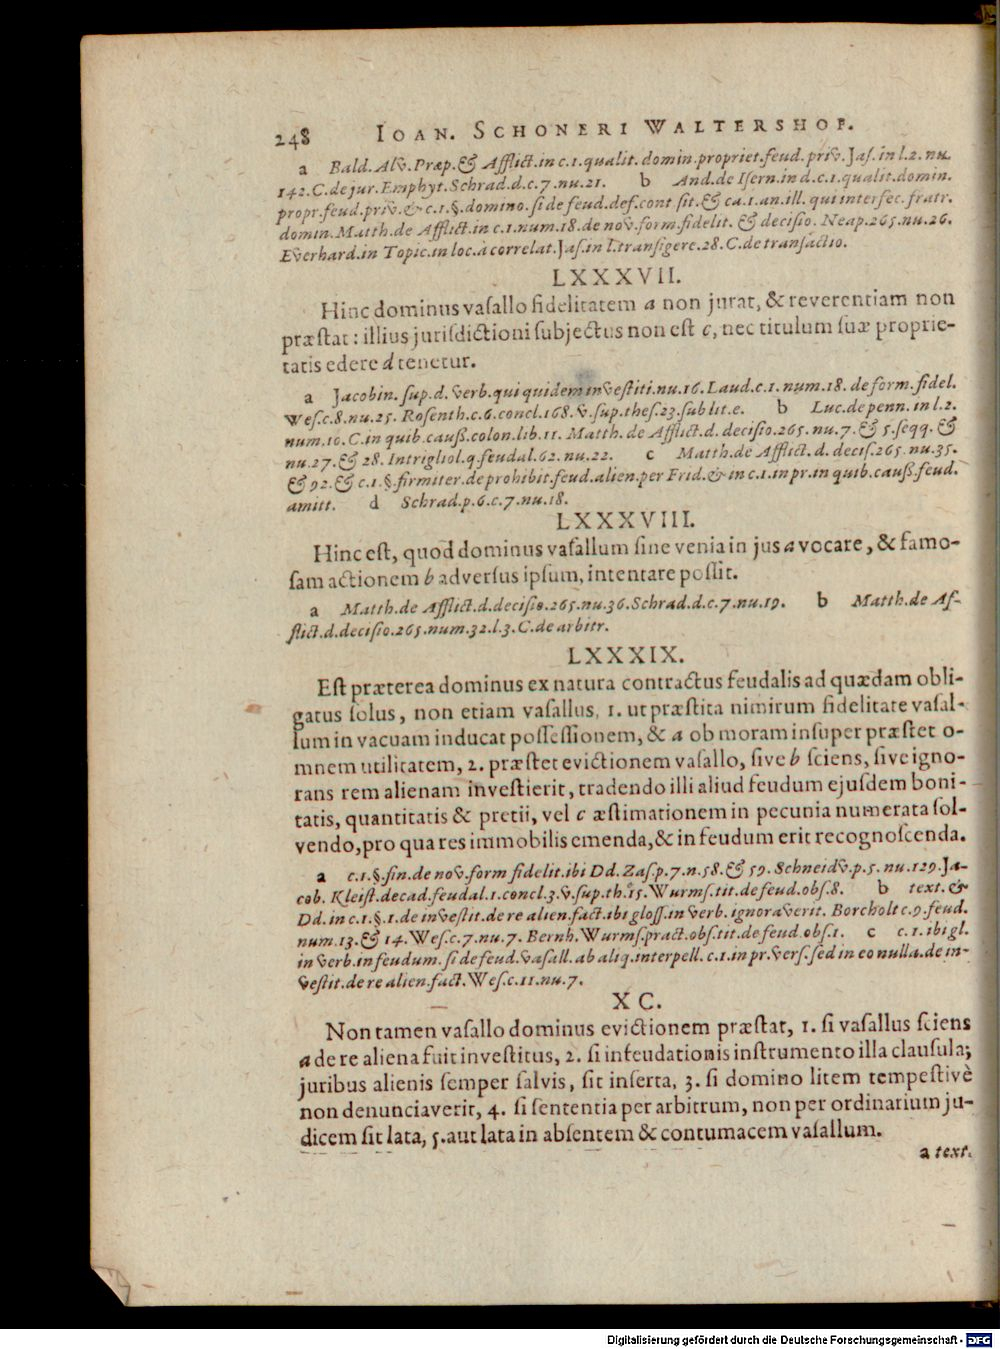 248 IOAN. SCHONERI WALTERSHOF.
a Bald. Alv. Præp. & Afflict. in c. 1. qualit. domin. propriet. feud. priv. Jaſ. in l. 2. nu.
142. C. de jur. Emphyt. Schrad. d. c. 7. nu. 21. b And. de Iſern. in d. c. 1. qualit. domin.
propr. feud. priv. & c. 1. §. domino. ſi de feud. def. cont ſit. & ca. 1. an. ill. qui interfec. fratr.
domin. Matth. de Afflict. in c. 1. num. 18. de nov. form. fidelit. & deciſio. Neap. 265. nu. 26.
Everhard. in Topic. in loc. à correlat. Jaſ. in l. tranſigere. 28. C. de tranſactio.
LXXXVII.
Hinc dominus vaſallo fidelitatem a non jurat, & reverentiam non
præſtat: illius jurisdictioni ſubjectus non eſt c, nec titulum ſuæ proprie-
tatis edere d tenetur.
a Jacobin. ſup. d. verb. qui quidem inveſtiti. nu. 16. Laud. c. 1. num. 18. de form. fidel.
Weſ. c. 8. nu. 25. Roſenth. c. 6. concl. 168. v. ſup. theſ. 23. ſub lit. e. b Luc. de penn. in l. 2.
num. 10. C. in quib. cauß. colon. lib. 11. Matth. de Afflict. d. deciſio. 265. nu. 7. & 5. ſeqq. &
nu. 27. & 28. Intrigliol. q. feudal. 62. nu. 22. c Matth. de Afflict. d. deciſ. 265. nu. 35.
& 92. & c. 1. §. firmiter. de prohibit. feud. alien. per Frid. & in c. 1. in pr. in quib. cauß. feud.
amitt. d Schrad. p. 6. c. 7. nu. 18.
LXXXVIII.
Hinc eſt, quod dominus vaſallum ſine venia in jus a vocare, & famo-
ſam actionem b adverſus ipſum, intentare poſſit.
a Matth. de Afflict. d. deciſio. 265. nu. 36. Schrad. d. c. 7. nu. 19. b Matth. de Af-
flict. d. deciſio. 265. num. 32. l. 3. C. de arbitr.
LXXXIX.
Eſt præterea dominus ex natura contractus feudalis ad quædam obli-
gatus ſolus, non etiam vaſallus, 1. ut præſtita nimirum fidelitate vaſal-
lum in vacuam inducat poſſeſſionem, & a ob moram inſuper præſtet o-
mnem utilitatem, 2. præſtet evictionem vaſallo, ſive b ſciens, ſive igno-
rans rem alienam inveſtierit, tradendo illi aliud feudum ejuſdem boni-
tatis, quantitatis & pretii, vel c æſtimationem in pecunia numerata ſol-
vendo, pro qua res immobilis emenda, & in feudum erit recognoſcenda.
a c. 1. §. fin. de nov. form fidelit. ibi Dd. Zaſ. p. 7. n. 58. & 59. Schneidv. p. 5. nu. 129. Ja-
cob. Kleiſt. decad. feudal. 1. concl. 3. v. ſup. th. 15. Wurmſ. tit. de feud. obſ. 8. b text. &
Dd. in c. 1. §. 1. de inveſtit. de re alien. fact. ibi gloſſ. in verb. ignoraverit. Borcholt c. 9. feud.
num. 13. & 14. Weſ. c. 7. nu. 7. Bernh. Wurmſ. pract. obſ. tit. de feud. obſ. 1. c c. 1. ibi gl.
in verb. in feudum. ſi de feud. vaſall. ab aliq. interpell. c. 1. in pr. verſ. ſed in eo nulla. de in-
veſtit. de re alien. fact. Weſ. c. 11. nu. 7.
XC.
Non tamen vaſallo dominus evictionem præſtat, 1. ſi vaſallus ſciens
a de re aliena fuit inveſtitus, 2. ſi infeudationis inſtrumento illa clauſula;
juribus alienis ſemper ſalvis, ſit inſerta, 3. ſi domino litem tempeſtivè
non denunciaverit, 4. ſi ſententia per arbitrum, non per ordinarium ju-
dicem ſit lata, 5. aut lata in abſentem & contumacem vaſallum.
a text.
Digitalisierung gefördert durch die Deutsche Forschungsgemeinschaft - DFG